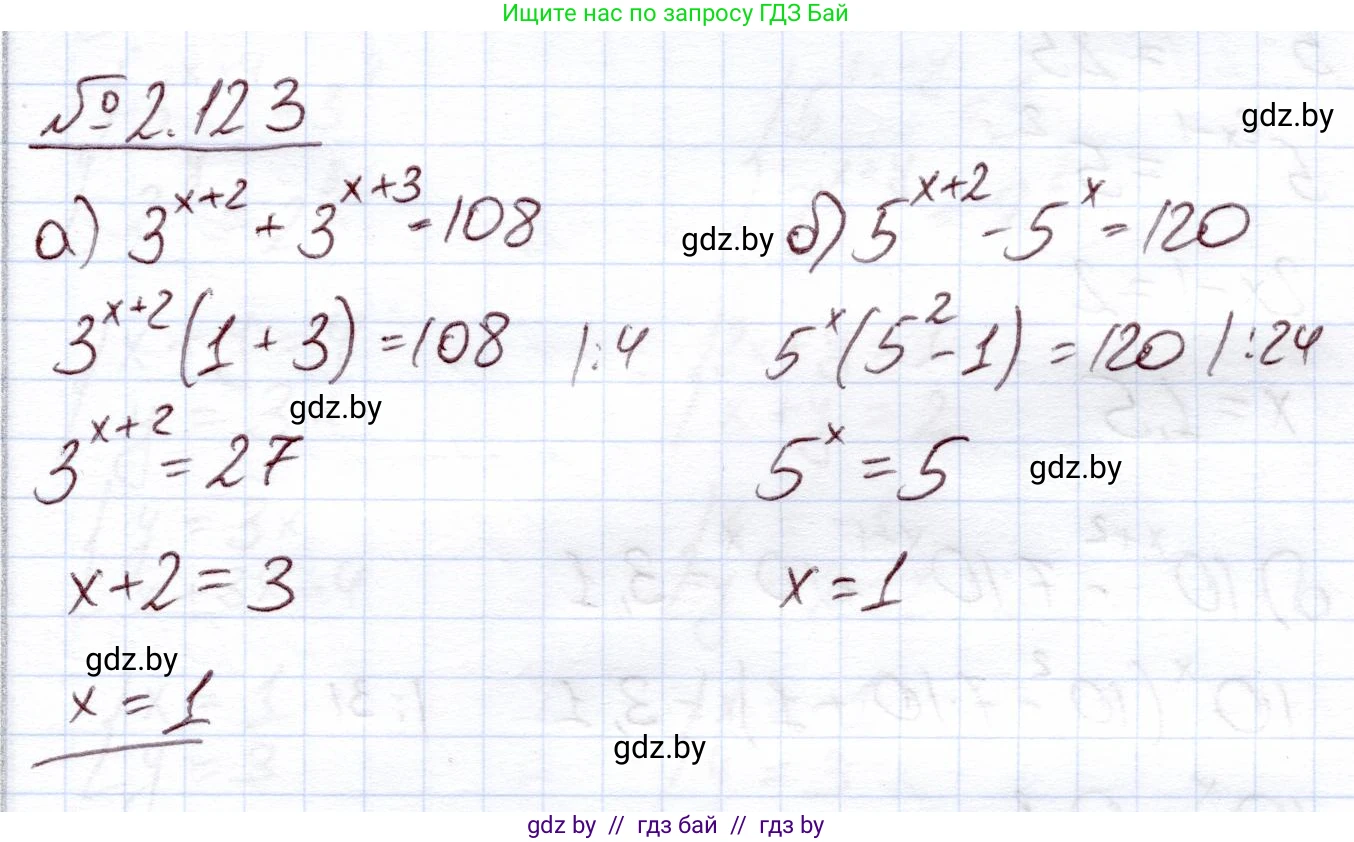 Ищите нас по запросу ГДЗ Бай
№ 2.123
gdz.by
а) 3^{x+2} + 3^{x+3} = 108
gdz.by
б) 5^{x+2} - 5^x = 120
3^{x+2} (1 + 3) = 108 |:4
5^x (5^2 - 1) = 120 |:24
gdz.by
3^{x+2} = 27
5^x = 5
gdz.by
x+2 = 3
x = 1
gdz.by
x = 1
gdz.by
gdz by // гдз бай // гдз by